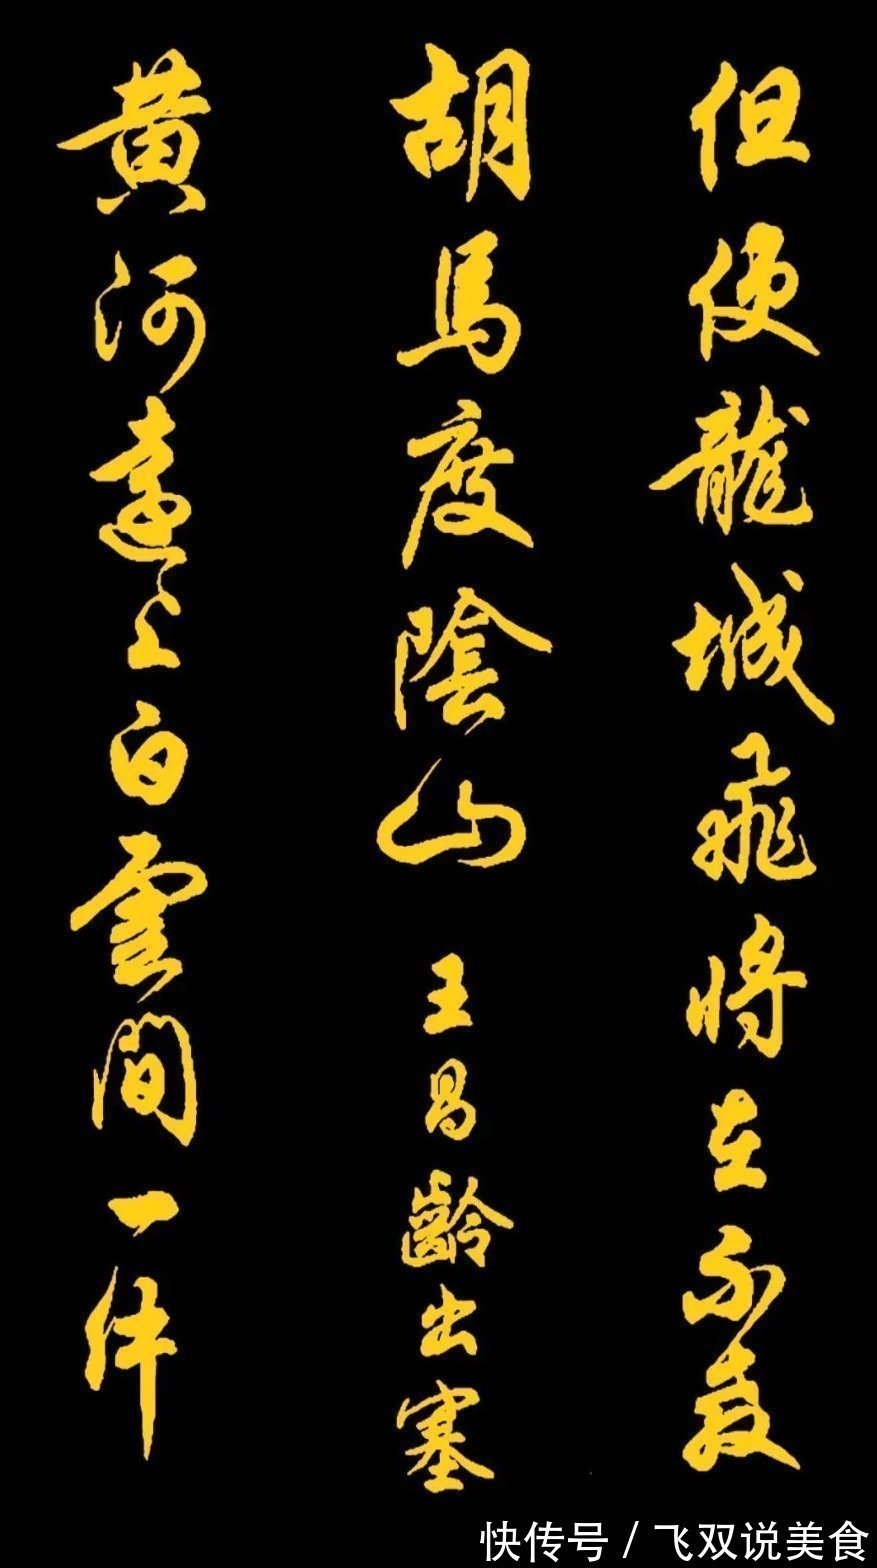 但使龍城飛將在不教
胡馬度陰山 王昌齡出塞
黄河遠上白雲間一件
快传号 / 飞双说美食